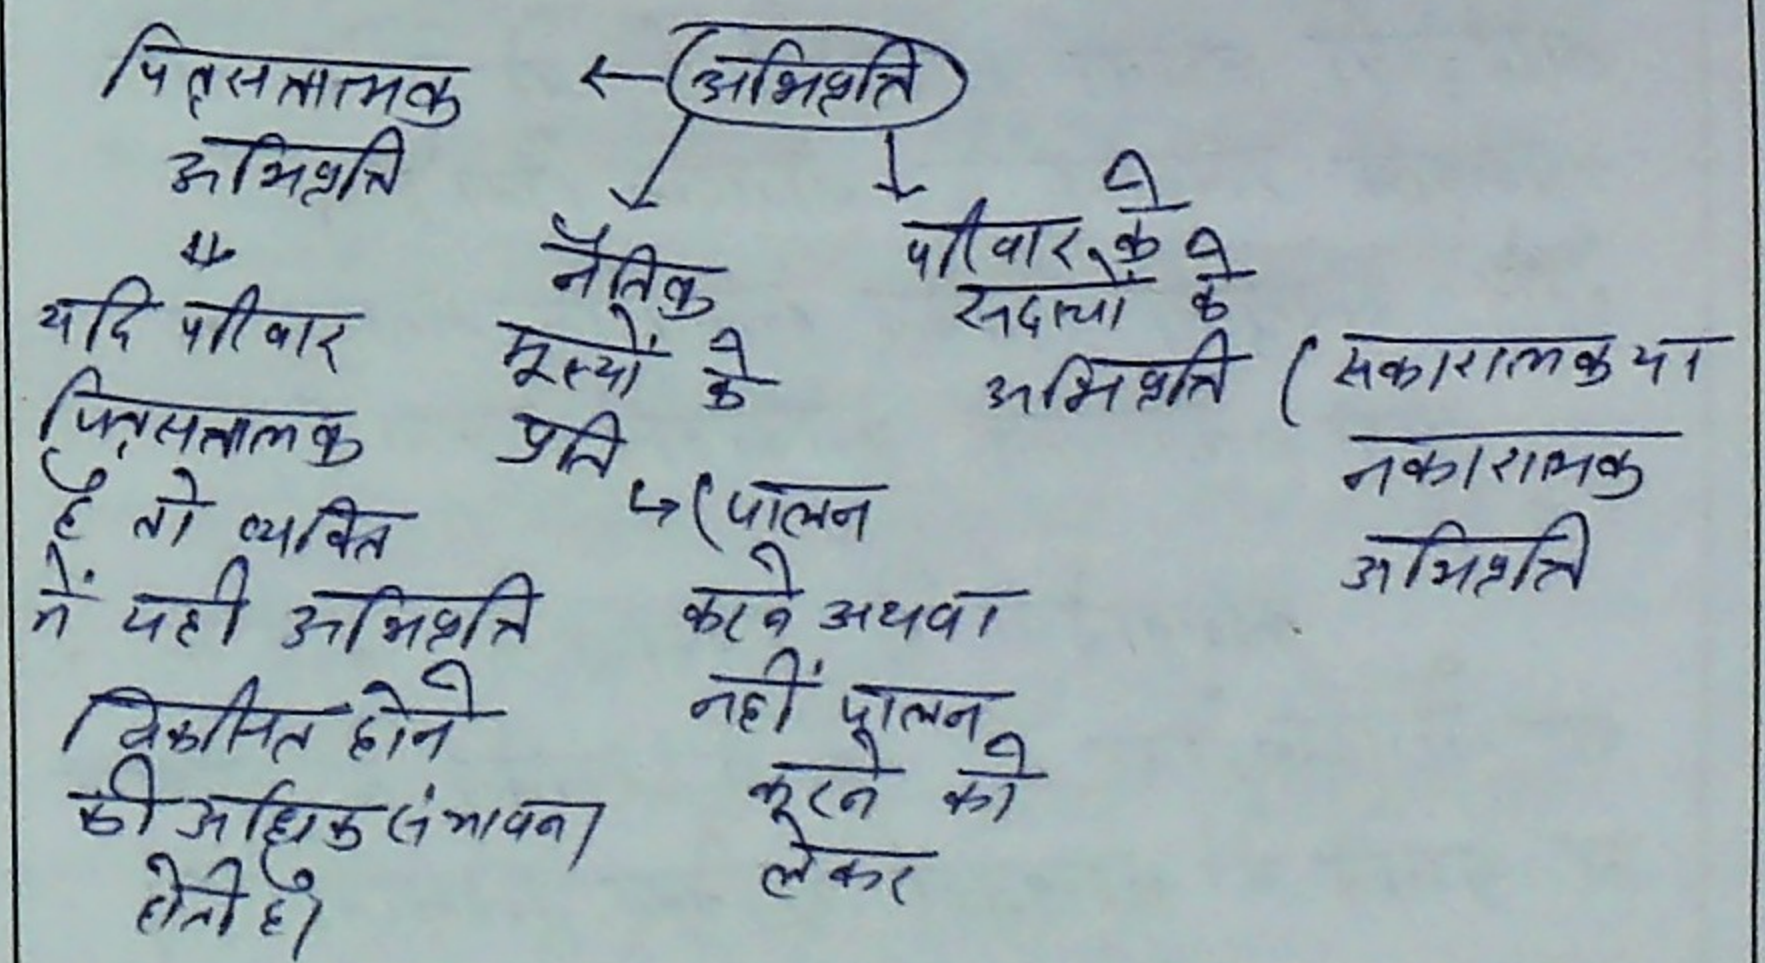 अभिवृत्ति
पितृसत्तात्मक
अभिवृत्ति
यदि परिवार
पितृसत्तात्मक
है तो व्यक्ति
में यही अभिवृत्ति
विकसित होने
की अधिक संभावना
होती है।
नैतिक
मूल्यों के
प्रति
(पालन
करने अथवा
नहीं पालन
करने को
लेकर
परिवार के
सदस्यों के
अभिवृत्ति (सकारात्मक या
नकारात्मक
अभिवृत्ति